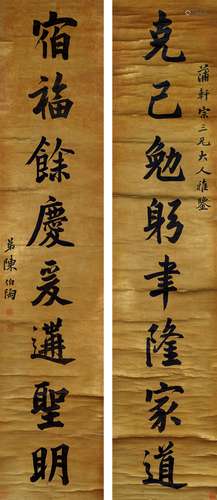 蒲軒宗三兄大人雅鑒
克己勉躬聿隆家道
宿福餘慶爰遘聖明
弟陳伯陶